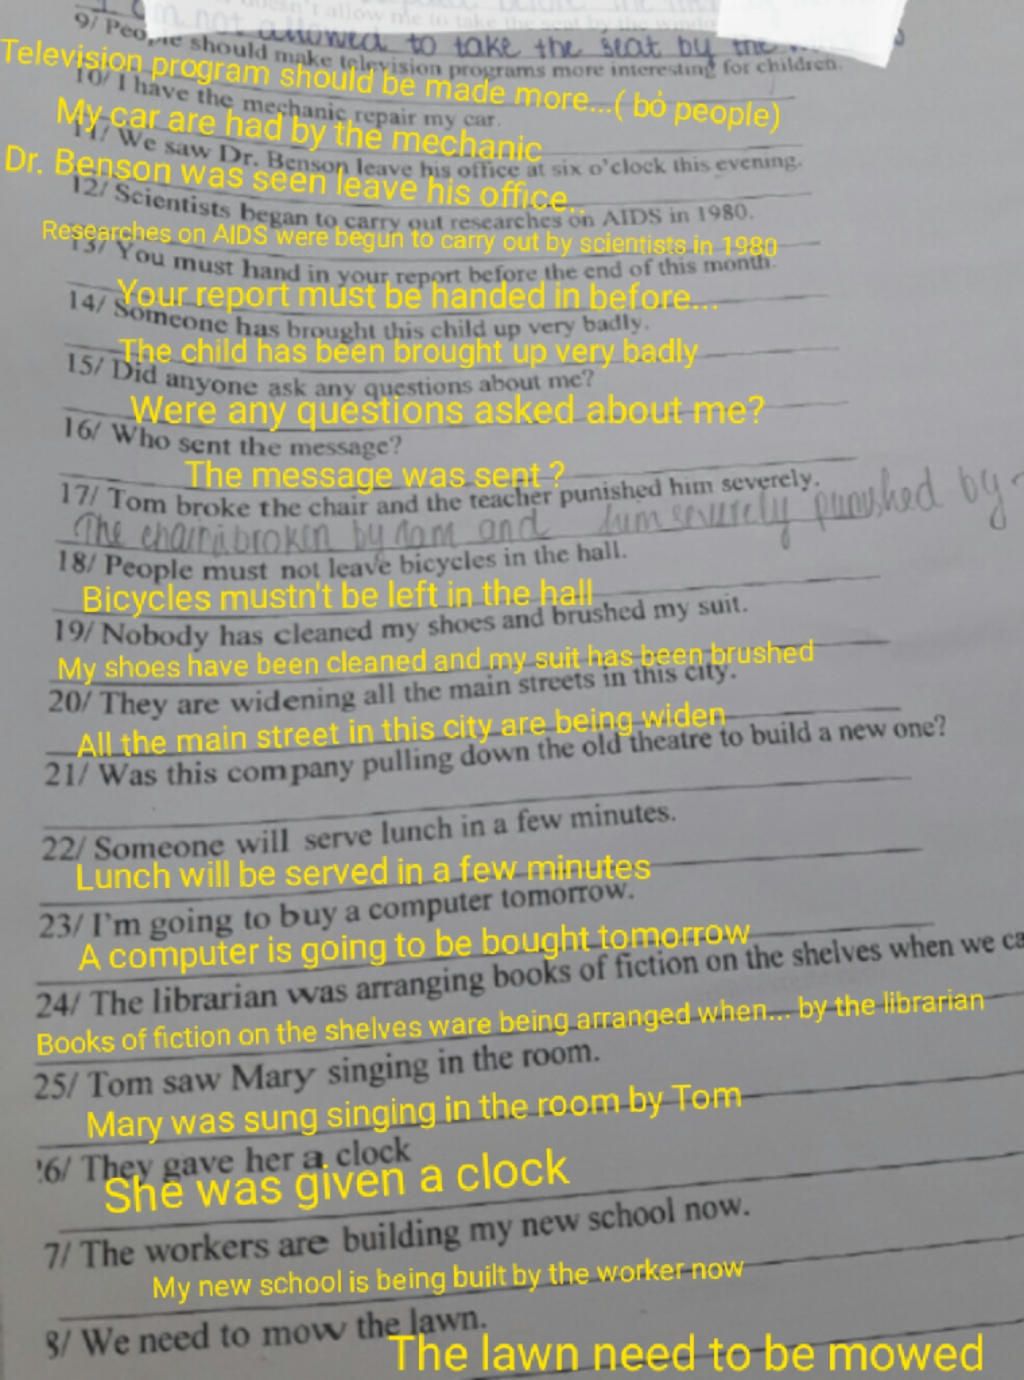 not allowed to take the seat by the
9/ People should make television programs more interesting for children.
Television program should be made more...( bỏ people)
10/ I have the mechanic repair my car.
My car are had by the mechanic
11/ We saw Dr. Benson leave his office at six o'clock this evening.
Dr. Benson was seen leave his office..
12/ Scientists began to carry out researches on AIDS in 1980.
Researches on AIDS were begun to carry out by scientists in 1980
13/ You must hand in your report before the end of this month.
Your report must be handed in before...
14/ Someone has brought this child up very badly.
The child has been brought up very badly
15/ Did anyone ask any questions about me?
Were any questions asked about me?
16/ Who sent the message?
The message was sent ?
17/ Tom broke the chair and the teacher punished him severely.
The chair broken by Tom and him severely punished by
18/ People must not leave bicycles in the hall.
Bicycles mustn't be left in the hall
19/ Nobody has cleaned my shoes and brushed my suit.
My shoes have been cleaned and my suit has been brushed
20/ They are widening all the main streets in this city.
All the main street in this city are being widen
21/ Was this company pulling down the old theatre to build a new one?
22/ Someone will serve lunch in a few minutes.
Lunch will be served in a few minutes
23/ I'm going to buy a computer tomorrow.
A computer is going to be bought tomorrow
24/ The librarian was arranging books of fiction on the shelves when we ca
Books of fiction on the shelves ware being arranged when... by the librarian
25/ Tom saw Mary singing in the room.
Mary was sung singing in the room by Tom
26/ They gave her a clock
She was given a clock
7/ The workers are building my new school now.
My new school is being built by the worker now
8/ We need to mow the lawn.
The lawn need to be mowed